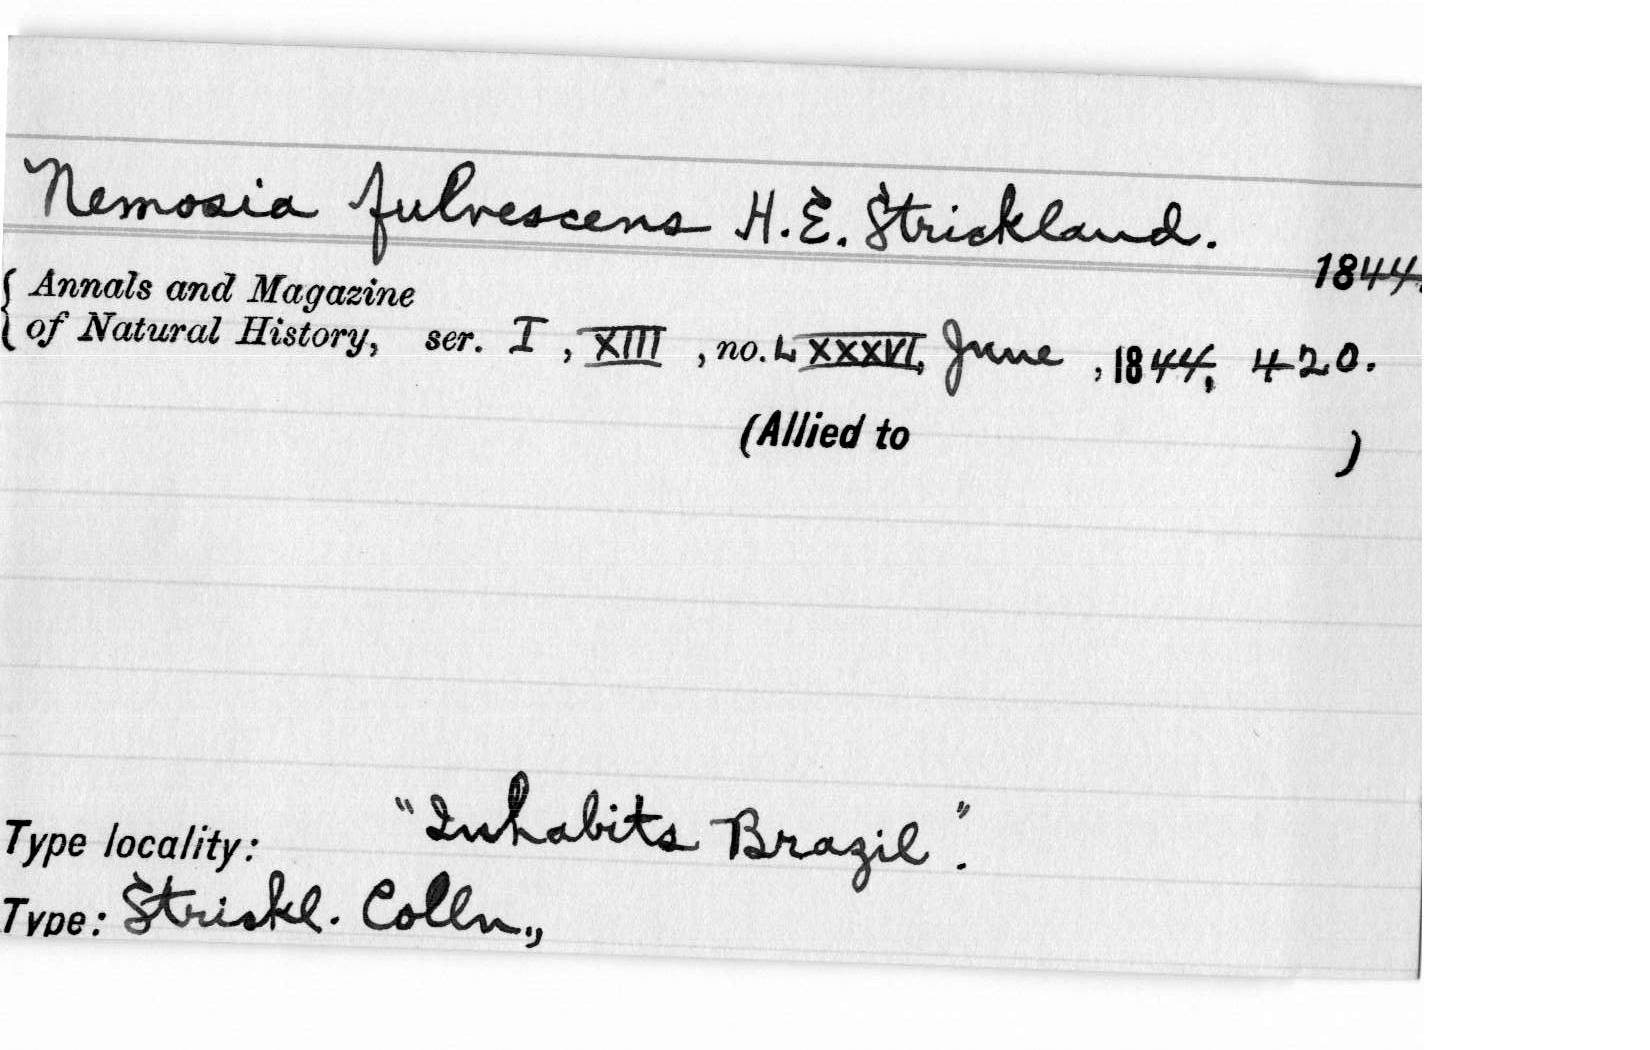 Nemosia fulvescens H.E. Strickland.
1844.
{ Annals and Magazine
of Natural History, ser. I, XIII, no. LXXXVI, June, 1844, 420.
(Allied to )
Type locality: "Inhabits Brazil".
Type: Strickl. Colln.,